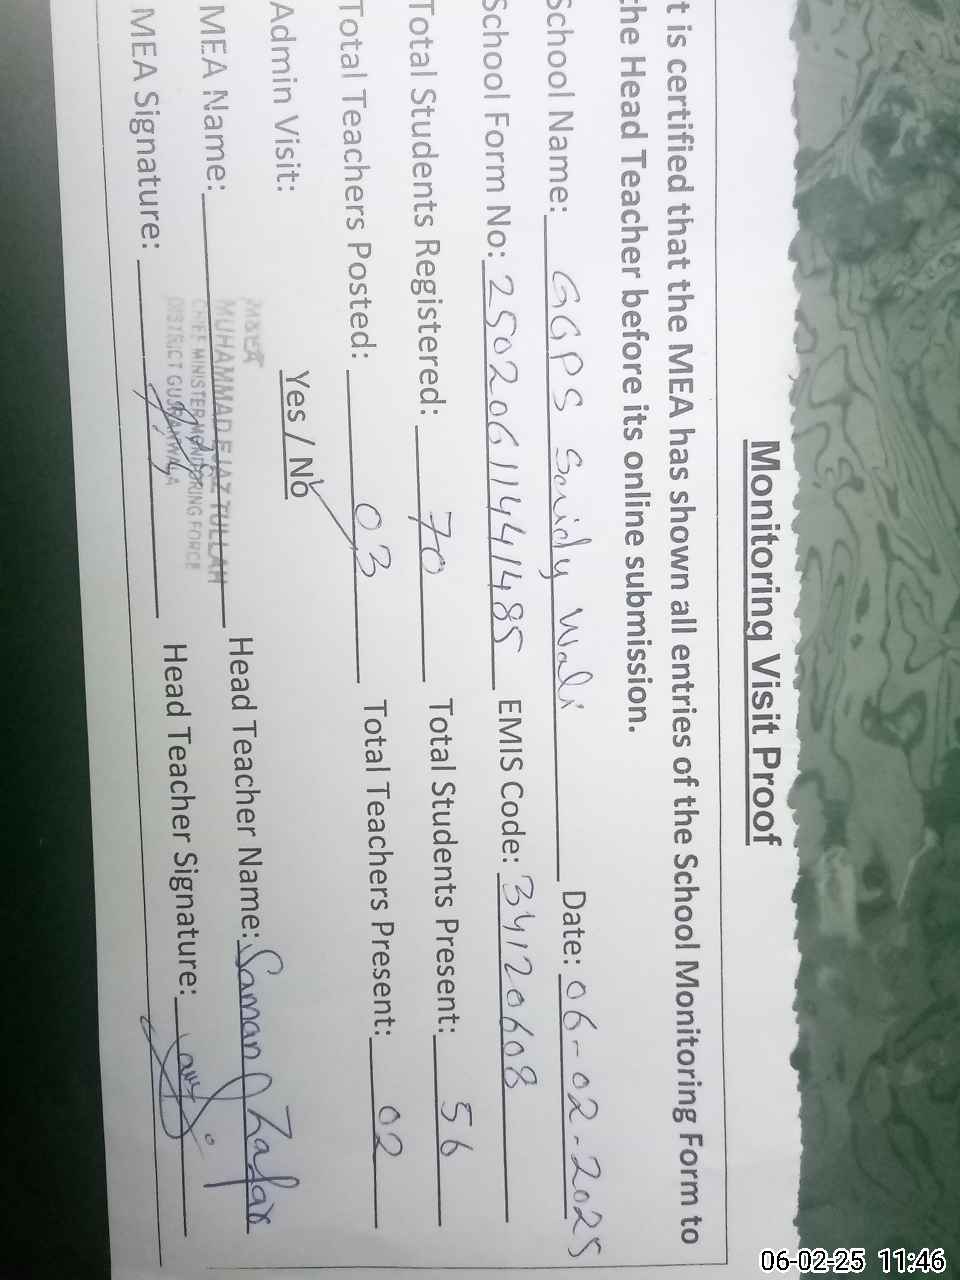 Monitoring Visit Proof
t is certified that the MEA has shown all entries of the School Monitoring Form to
the Head Teacher before its online submission.
School Name: GGPS Saidy Wali Date: 06-02-2025
School Form No: 25020611441485 EMIS Code: 34120608
Total Students Registered: 70 Total Students Present: 56
Total Teachers Posted: 03 Total Teachers Present: 02
Admin Visit: Yes / No
MEA Name: MUHAMMAD EJAZ TULLAH Head Teacher Name: Saman Zafar
CHIEF MINISTER MONITORING FORCE
DISTRICT GUJRANWALA
MEA Signature: Head Teacher Signature:
06-02-25 11:46